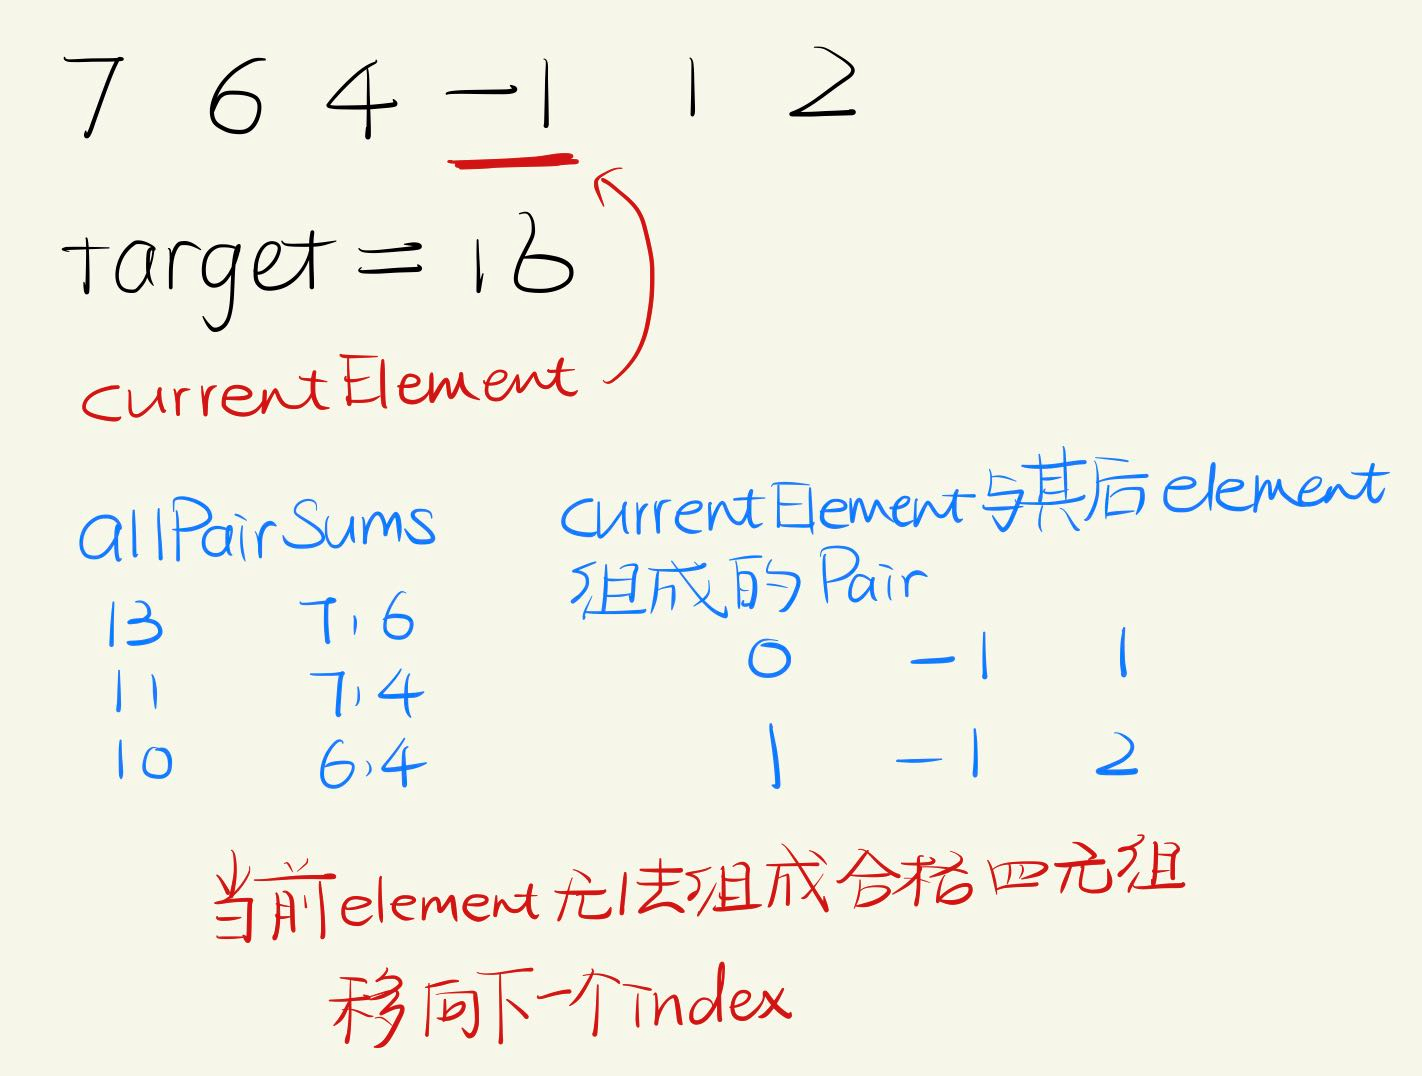 7 6 4 -1 1 2
target = 16
currentElement
allPairSums
13 7,6
11 7,4
10 6,4
currentElement与其后element
组成的Pair
0 -1 1
1 -1 2
当前element无法组成合格四元组
移向下一个index